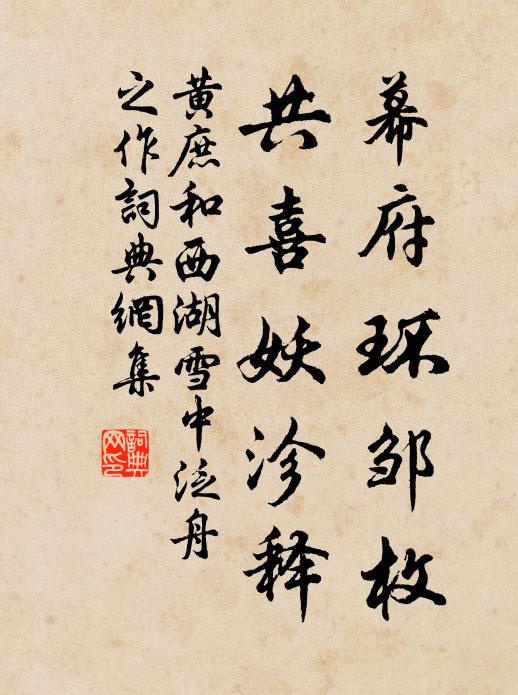 幕府环邹枚
共喜妖沴释
黄庶和西湖雪中泛舟
之作詞典網集
詞典
网印